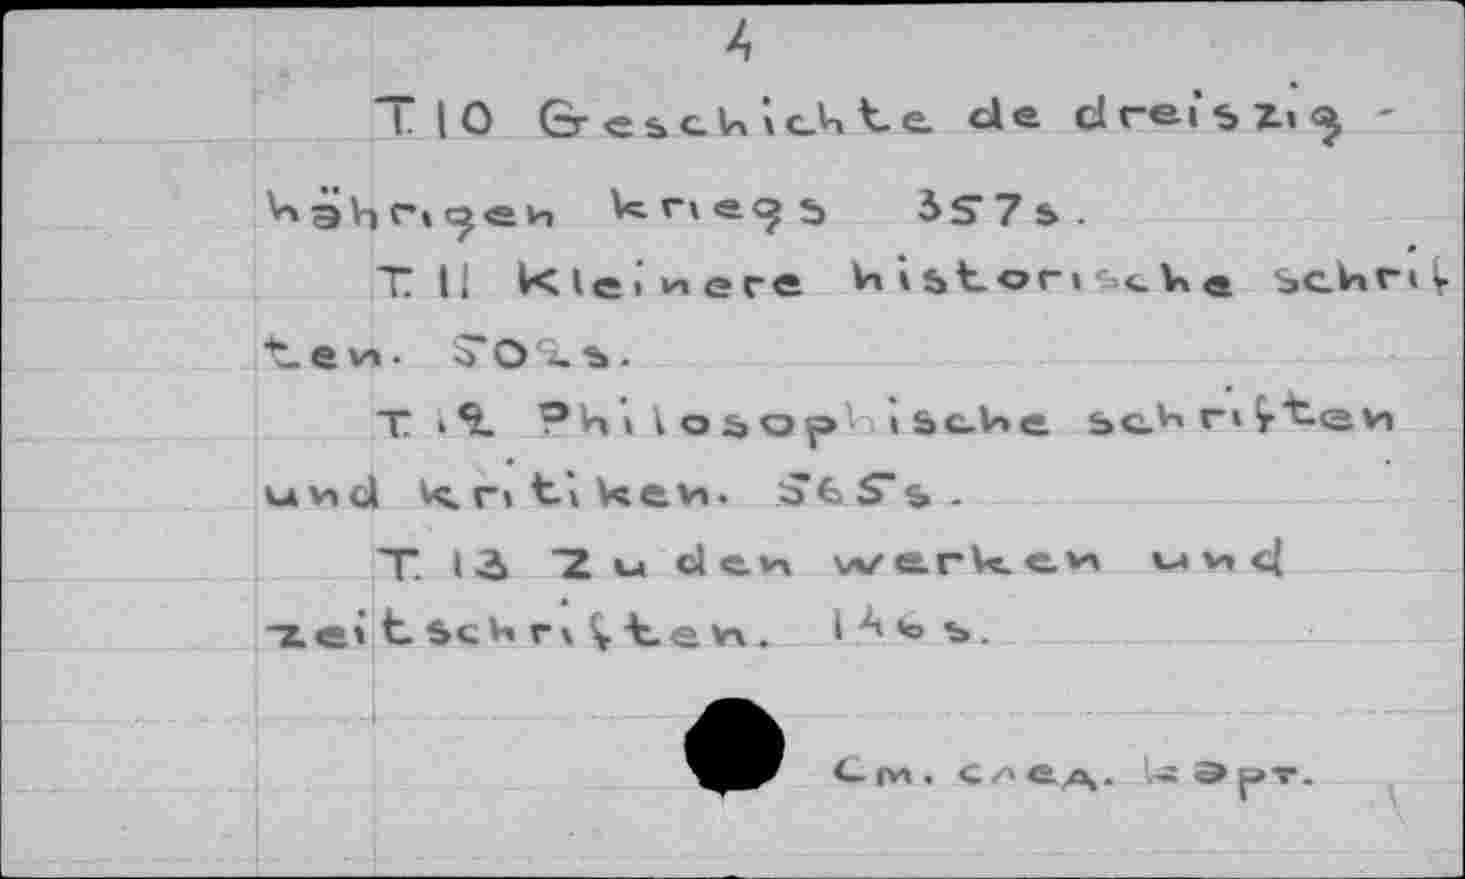 4
T. 10 Geschichte de dreiszig -
hährigen kriegs 357 s.
T. 11 Kleinere historische schrif
ten. 502 s.
T. 12 Philosophische schriften
und kritiken. 565 s.
T. 13 Zu den werken und
zeitschriften. 146 s.
См. след. карт.